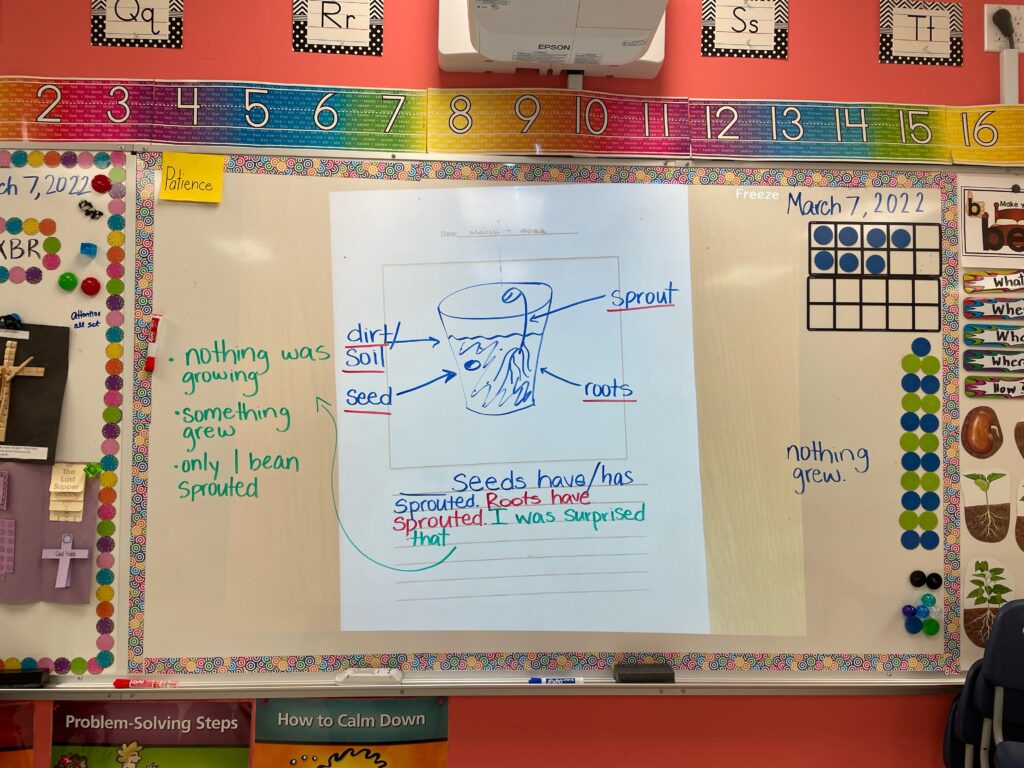 Qq
Rr
EPSON
Ss
Tt
2 3 4 5 6 7 8 9 10 11 12 13 14 15 16
ch 7, 2022
XBR
Attentive
all set
The
Last
Supper
Good Friday
Patience
Freeze
March 7, 2022
Date: March 7 2022
dirt/
soil
seed
sprout
roots
• nothing was
growing
• something
grew
• only 1 bean
sprouted
____ Seeds have/has
sprouted. Roots have
sprouted. I was surprised
that
nothing
grew.
b
Make
be
What
Whe
Wh
Where
How
EXPO
Problem-Solving Steps
How to Calm Down